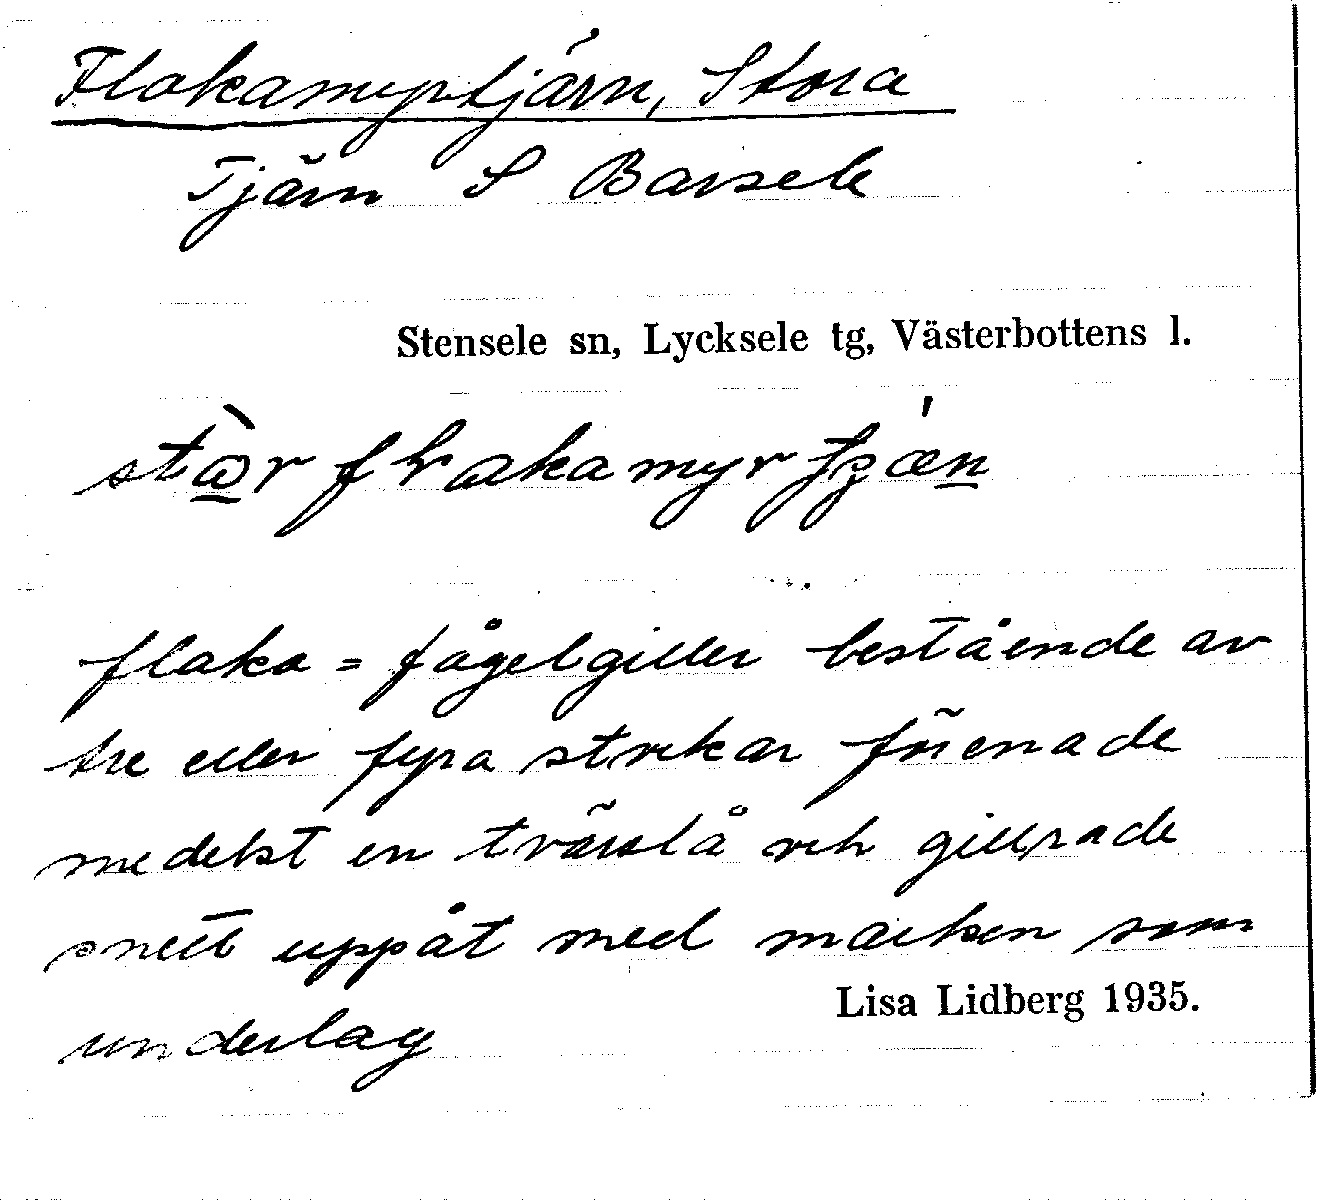 Flakamyrtjärn, Stora
Tjärn S Barsele
Stensele sn, Lycksele tg, Västerbottens l.
flaka = fågelgiller bestående av
tre eller fyra stockar förenade
medelst en tvärslå och gillrade
snett uppåt med marken som
Lisa Lidberg 1935.
underlag